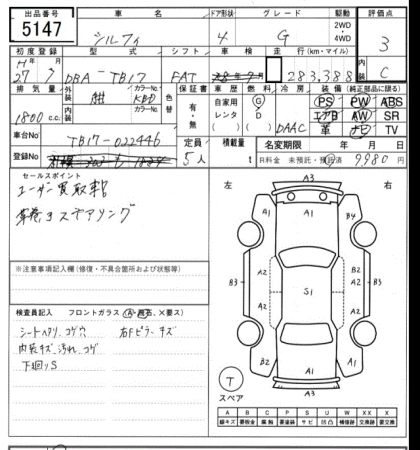 出品番号 車名 ドア形状 グレード 駆動 評価点
5147 シルフィ 4 G 2WD 4WD 3
初度登録 型式 シフト 車検 走行(km・マイル) 内装
H 27年 DBA-TB17 FAT 283,388 C
排気量 外装 紺 カラーNo. KBD 色替 カラーNo. 保証書 車歴 燃料 冷房 装備(純正部品に限る)
1800 cc 内装 有・無 自家用 レンタ G D AAC PS PW ABS
エアB AW SR
革 ナビ TV
車台No TB17-022446 定員 積載量 名変期限 年 月 日
登録No 5人 t R料金 未預託・預託済 9,980円
セールスポイント
ユーザー買取車
革巻きステアリング
左 右
※注意事項記入欄(修復・不具合箇所および状態等)
検査員記入欄 フロントガラス(A・飛石、X要ス)
シートヘタリ、コゲ穴 右Fピラーキズ
内装キズ、汚れ、コゲ
下廻りS
A3
A1 A1
A1 B4
B3 A2 A2 B3
S1
A2 A2
A1
B2 B2
A3
T
スペア
A B C P S U W X XX
線キズ 要板金 腐蝕 要塗装 サビ 凹凸 補修跡 交換跡 要交換